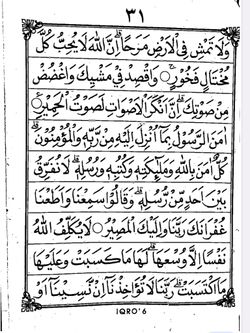 ٣١
وَلَا تَمْشِ فِى الْاَرْضِ مَرَحًا ۚ اِنَّ اللّٰهَ لَا يُحِبُّ كُلَّ
مُخْتَالٍ فَخُوْرٍ ۞ وَاقْصِدْ فِيْ مَشْيِكَ وَاغْضُضْ
مِنْ صَوْتِكَ ۗ اِنَّ اَنْكَرَ الْاَصْوَاتِ لَصَوْتُ الْحَمِيْرِ ۞
اٰمَنَ الرَّسُوْلُ بِمَآ اُنْزِلَ اِلَيْهِ مِنْ رَّبِّهٖ وَالْمُؤْمِنُوْنَ ۗ
كُلٌّ اٰمَنَ بِاللّٰهِ وَمَلٰٓئِكَتِهٖ وَكُتُبِهٖ وَرُسُلِهٖ ۗ لَا نُفَرِّقُ
بَيْنَ اَحَدٍ مِّنْ رُّسُلِهٖ ۗ وَقَالُوْا سَمِعْنَا وَاَطَعْنَا
غُفْرَانَكَ رَبَّنَا وَاِلَيْكَ الْمَصِيْرُ ۞ لَا يُكَلِّفُ اللّٰهُ
نَفْسًا اِلَّا وُسْعَهَا ۗ لَهَا مَا كَسَبَتْ وَعَلَيْهَا
مَا اكْتَسَبَتْ ۗ رَبَّنَا لَا تُؤَاخِذْنَآ اِنْ نَّسِيْنَآ اَوْ
IQRO'6